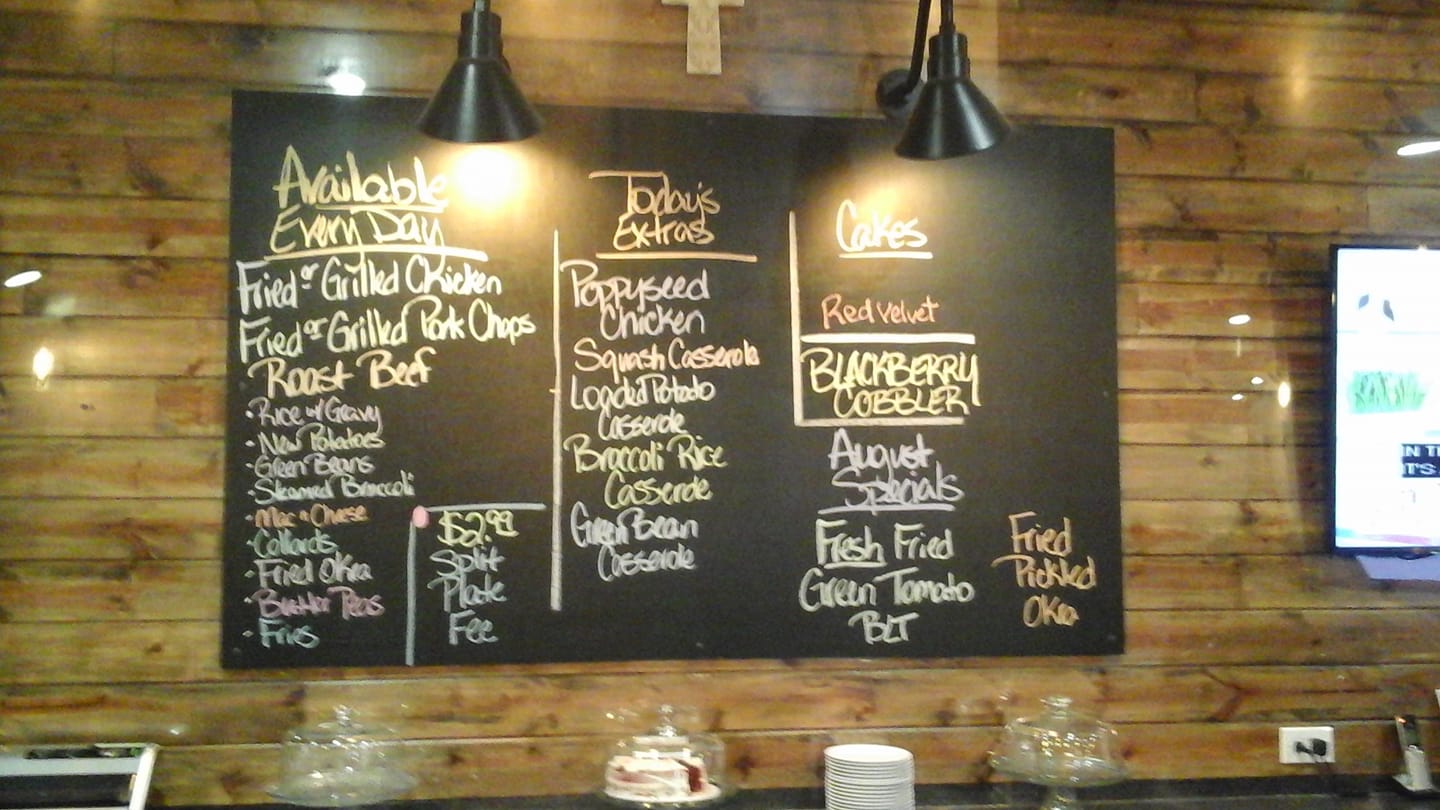 Available
Every Day
Fried or Grilled Chicken
Fried or Grilled Pork Chops
Roast Beef
• Rice w/ Gravy
• New Potatoes
• Green Beans
• Steamed Broccoli
• Mac n Cheese
• Collards
• Fried Okra
• Butter Peas
• Fries
$2.99
Split
Plate
Fee
Today's
Extras
Poppyseed
Chicken
Squash Casserole
Loaded Potato
Casserole
Broccoli Rice
Casserole
Green Bean
Casserole
Cakes
Red Velvet
BLACKBERRY
COBBLER
August
Specials
Fresh Fried
Green Tomato
BLT
Fried
Pickled
Okra
IN
IT'S